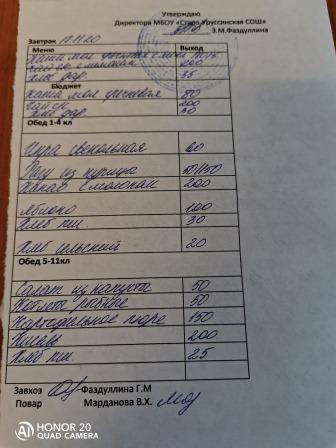 Утверждаю
Директора МБОУ «Старо-Уруссинская СОШ»
З.М.Фаздуллина
Завтрак 17.11.20
Меню Выход
Каша мол
с молоком 200
Хлеб дар. 35
Бюджет
Каша мол гречневая 80
Чай сл 200
Хлеб дар 30
Обед 1-4 кл
Икра свекольная 60
Рагу из курицы 50/150
Какао с молоком 200
Яблоко 100
Хлеб пш. 30
Хлеб 20
Обед 5-11кл
Салат из капусты 50
Котлета рыбное 50
Картофельное пюре 150
Кисель 200
Хлеб пш. 25
Завхоз Фаздуллина Г.М
Повар Марданова В.Х.
HONOR 20
QUAD CAMERA